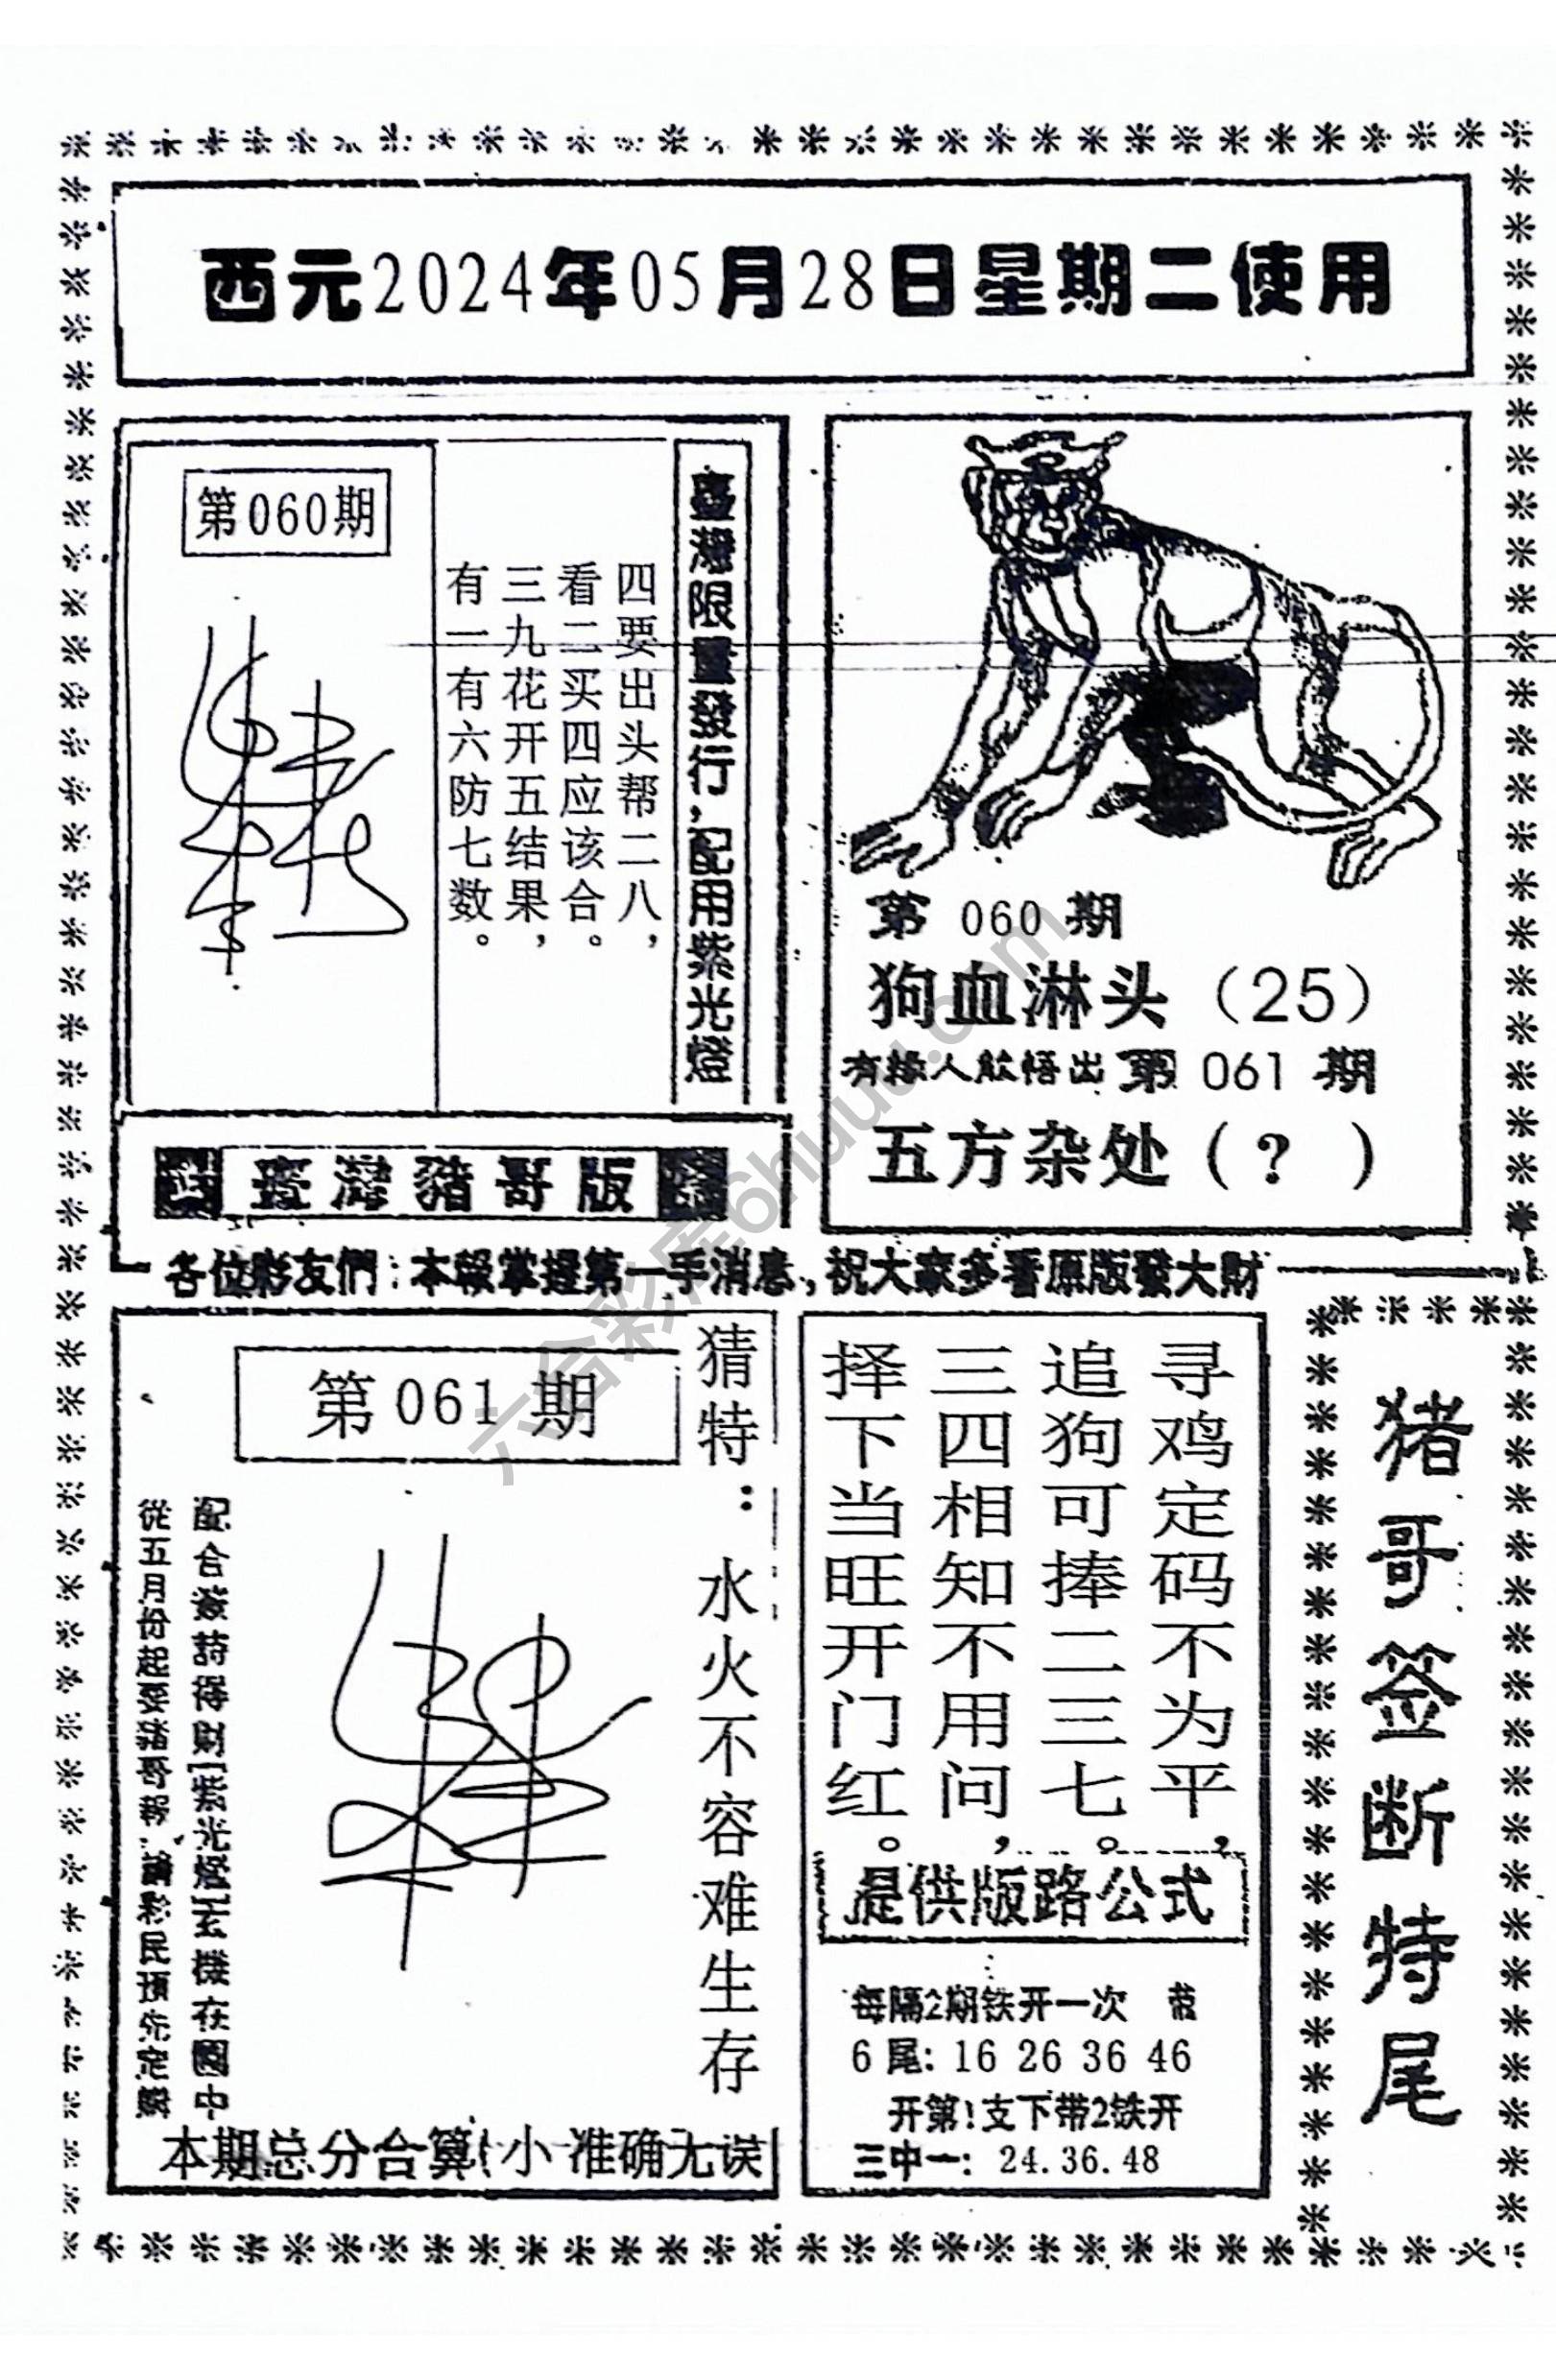 西元2024年05月28日星期二使用
第060期
臺灣限量發行,配用紫光燈
四要出头帮二八,
看二买四应该合。
三九花开五结果,
有一有六防七数。
臺灣豬哥版
第 060 期
狗血淋头（25）
第 061 期
五方杂处（？）
各位彩友們:本報掌握第一手消息,祝大家多看原版發大財
第061期
猜特：水火不容难生存
本期总分合算!小 准确无误
寻鸡定码不为平,
追狗可捧二三七。
三四相知不用问,
择下当旺开门红。
提供版路公式
每隔2期铁开一次
6尾: 16 26 36 46
开第!支下带2铁开
三中一: 24.36.48
猪哥签断特尾
六合彩库6huuu.com